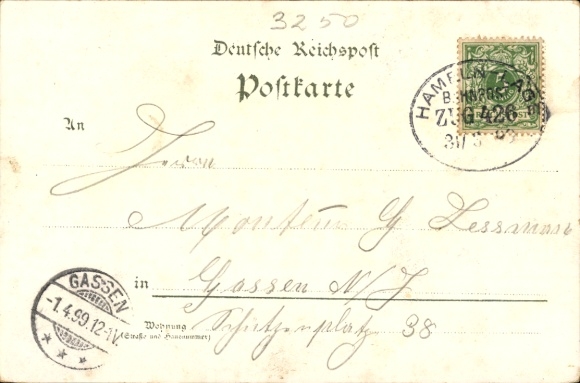 3250
Deutsche Reichspost
Postkarte
HAMELN
BAHNPOST
ZUG 426
31/3 99
REICHSPOST
An
Herrn
Monteur G Lessmann
in Gassen N/L
Wohnung
(Straße und Hausnummer)
Schützenplatz 38
GASSEN
-1.4.99.12-1V.
* * *